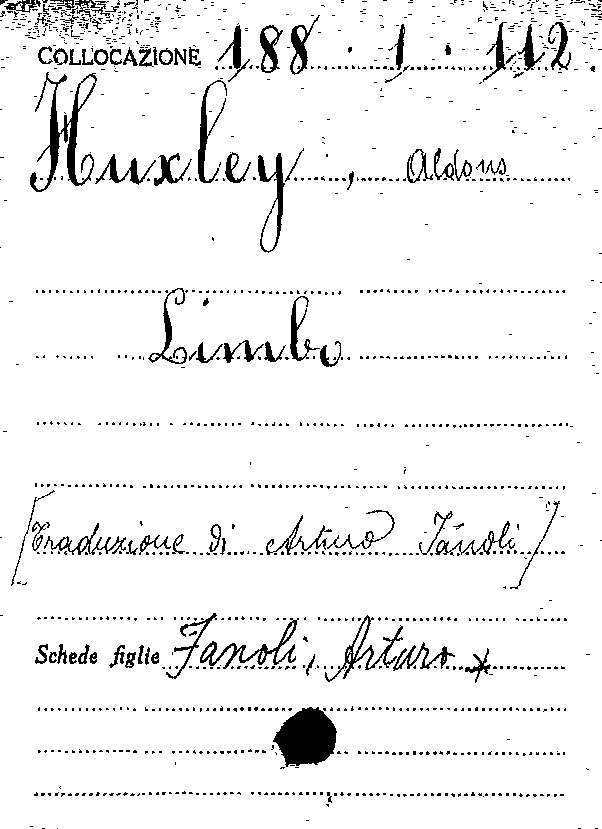 COLLOCAZIONE 188.1.112.
Huxley, Aldous
Limbo
[Traduzione di Arturo Fanoli]
Schede figlie Fanoli, Arturo *